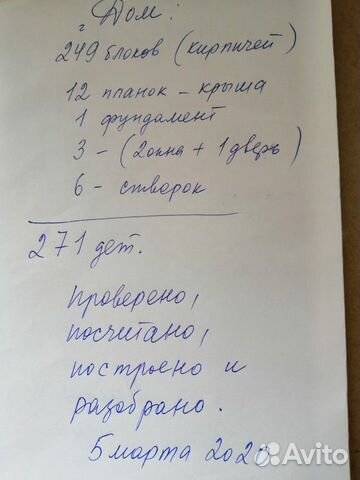 Дом:
249 блоков (кирпичей)
12 планок - крыша
1 фундамент
3 - (2окна + 1 дверь)
6 - створок
271 дет.
проверено,
посчитано,
построено и
разобрано.
5 марта 2020
Avito